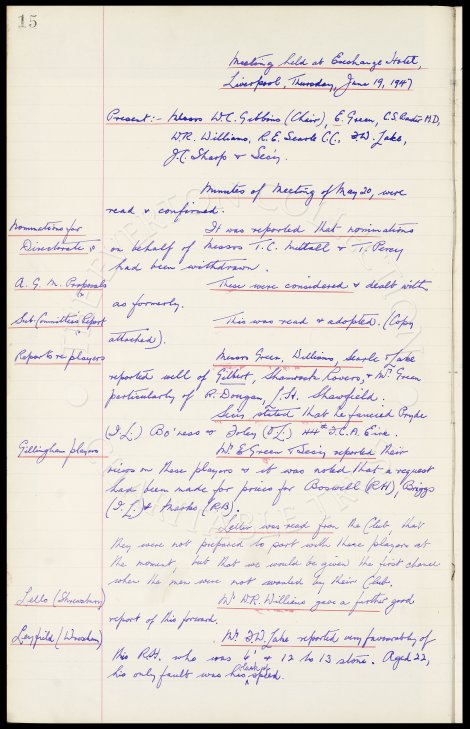 15
Meeting held at Exchange Hotel,
Liverpool, Thursday, June 19, 1947
Present:- Messrs W.C. Gibbins (Chair), E. Green, C.S. Baxter M.D,
W.R. Williams, R.E. Searle C.C, F.W. Jake,
J.C. Sharp & Sec'y.
Minutes of Meeting of May 20, were
read & confirmed.
Nominations for
Directorate
It was reported that nominations
on behalf of Messrs T.C. Nuttall & T. Percy
had been withdrawn.
A. G. M. Proposals
These were considered & dealt with
as formerly.
Sub-Committees Report
This was read & adopted. (Copy
attached).
Reports re players
Messrs Green, Williams, Searle & Jake
reported well of Gilbert, Shamrock Rovers, & Mr Green
particularly of R. Dougan, I.H. Shawfield.
Sec'y stated that he fancied Pryde
(I.L.) Bo'ness & Foley (O.L.) 44th F.C.A. Eire.
Gillingham players
Mr. E. Green & Sec'y reported their
views on these players & it was noted that a request
had been made for prices for Boswell (RH), Briggs
(I.L) & Marks (R.B).
Letter was read from the Club, that
they were not prepared to part with these players at
the moment, but that we would be given the first chance
when the men were not wanted by their Club.
Lello (Shrewsbury)
Mr W.R. Williams gave a further good
report of this forward.
Leyfield (Wrexham)
Mr. F.W. Jake reported very favourably of
this R.H. who was 6' & 12 to 13 stone. Aged 22,
his only fault was his speed.